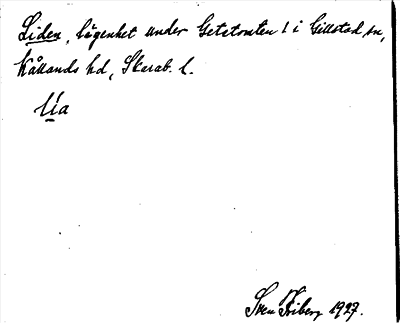 Liden, lägenhet under Getetomten 1 i Gillstad sn,
Kållands hd, Skarab. l.
lia
Sven Friberg 1927.